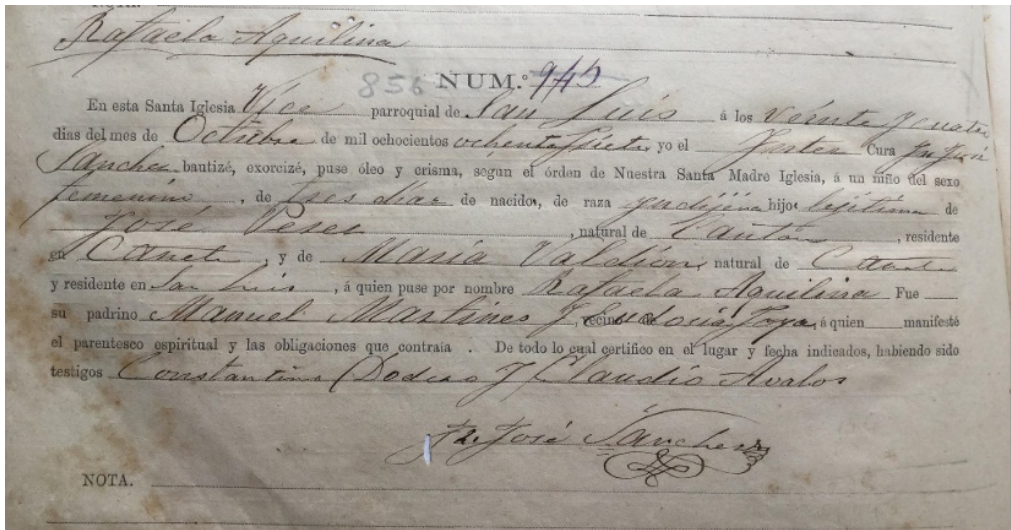 Rafaela Aquilina
856 NUM.º 945
En esta Santa Iglesia Vice parroquial de San Luis á los veinte y cuatro
dias del mes de Octubre de mil ochocientos ochenta y siete, yo el Cura Fr José
Sanchez bautizé, exorcizé, puse óleo y crisma, según el órden de Nuestra Santa Madre Iglesia, á un niño del sexo
femenino, de tres dias de nacido, de raza yndijena hijo lejitima de
José Peres, natural de Cantón, residente
en Cañete, y de María Valdión, natural de Cañete
y residente en San Luis, á quien puse por nombre Rafaela Aquilina Fue
su padrino Manuel Martines y Eudocia Joya, á quien manifesté
el parentesco espiritual y las obligaciones que contraía. De todo lo cual certifico en el lugar y fecha indicados, habiendo sido
testigos Constantino Dodero y Claudio Avalos
Fr. José Sánchez
NOTA.